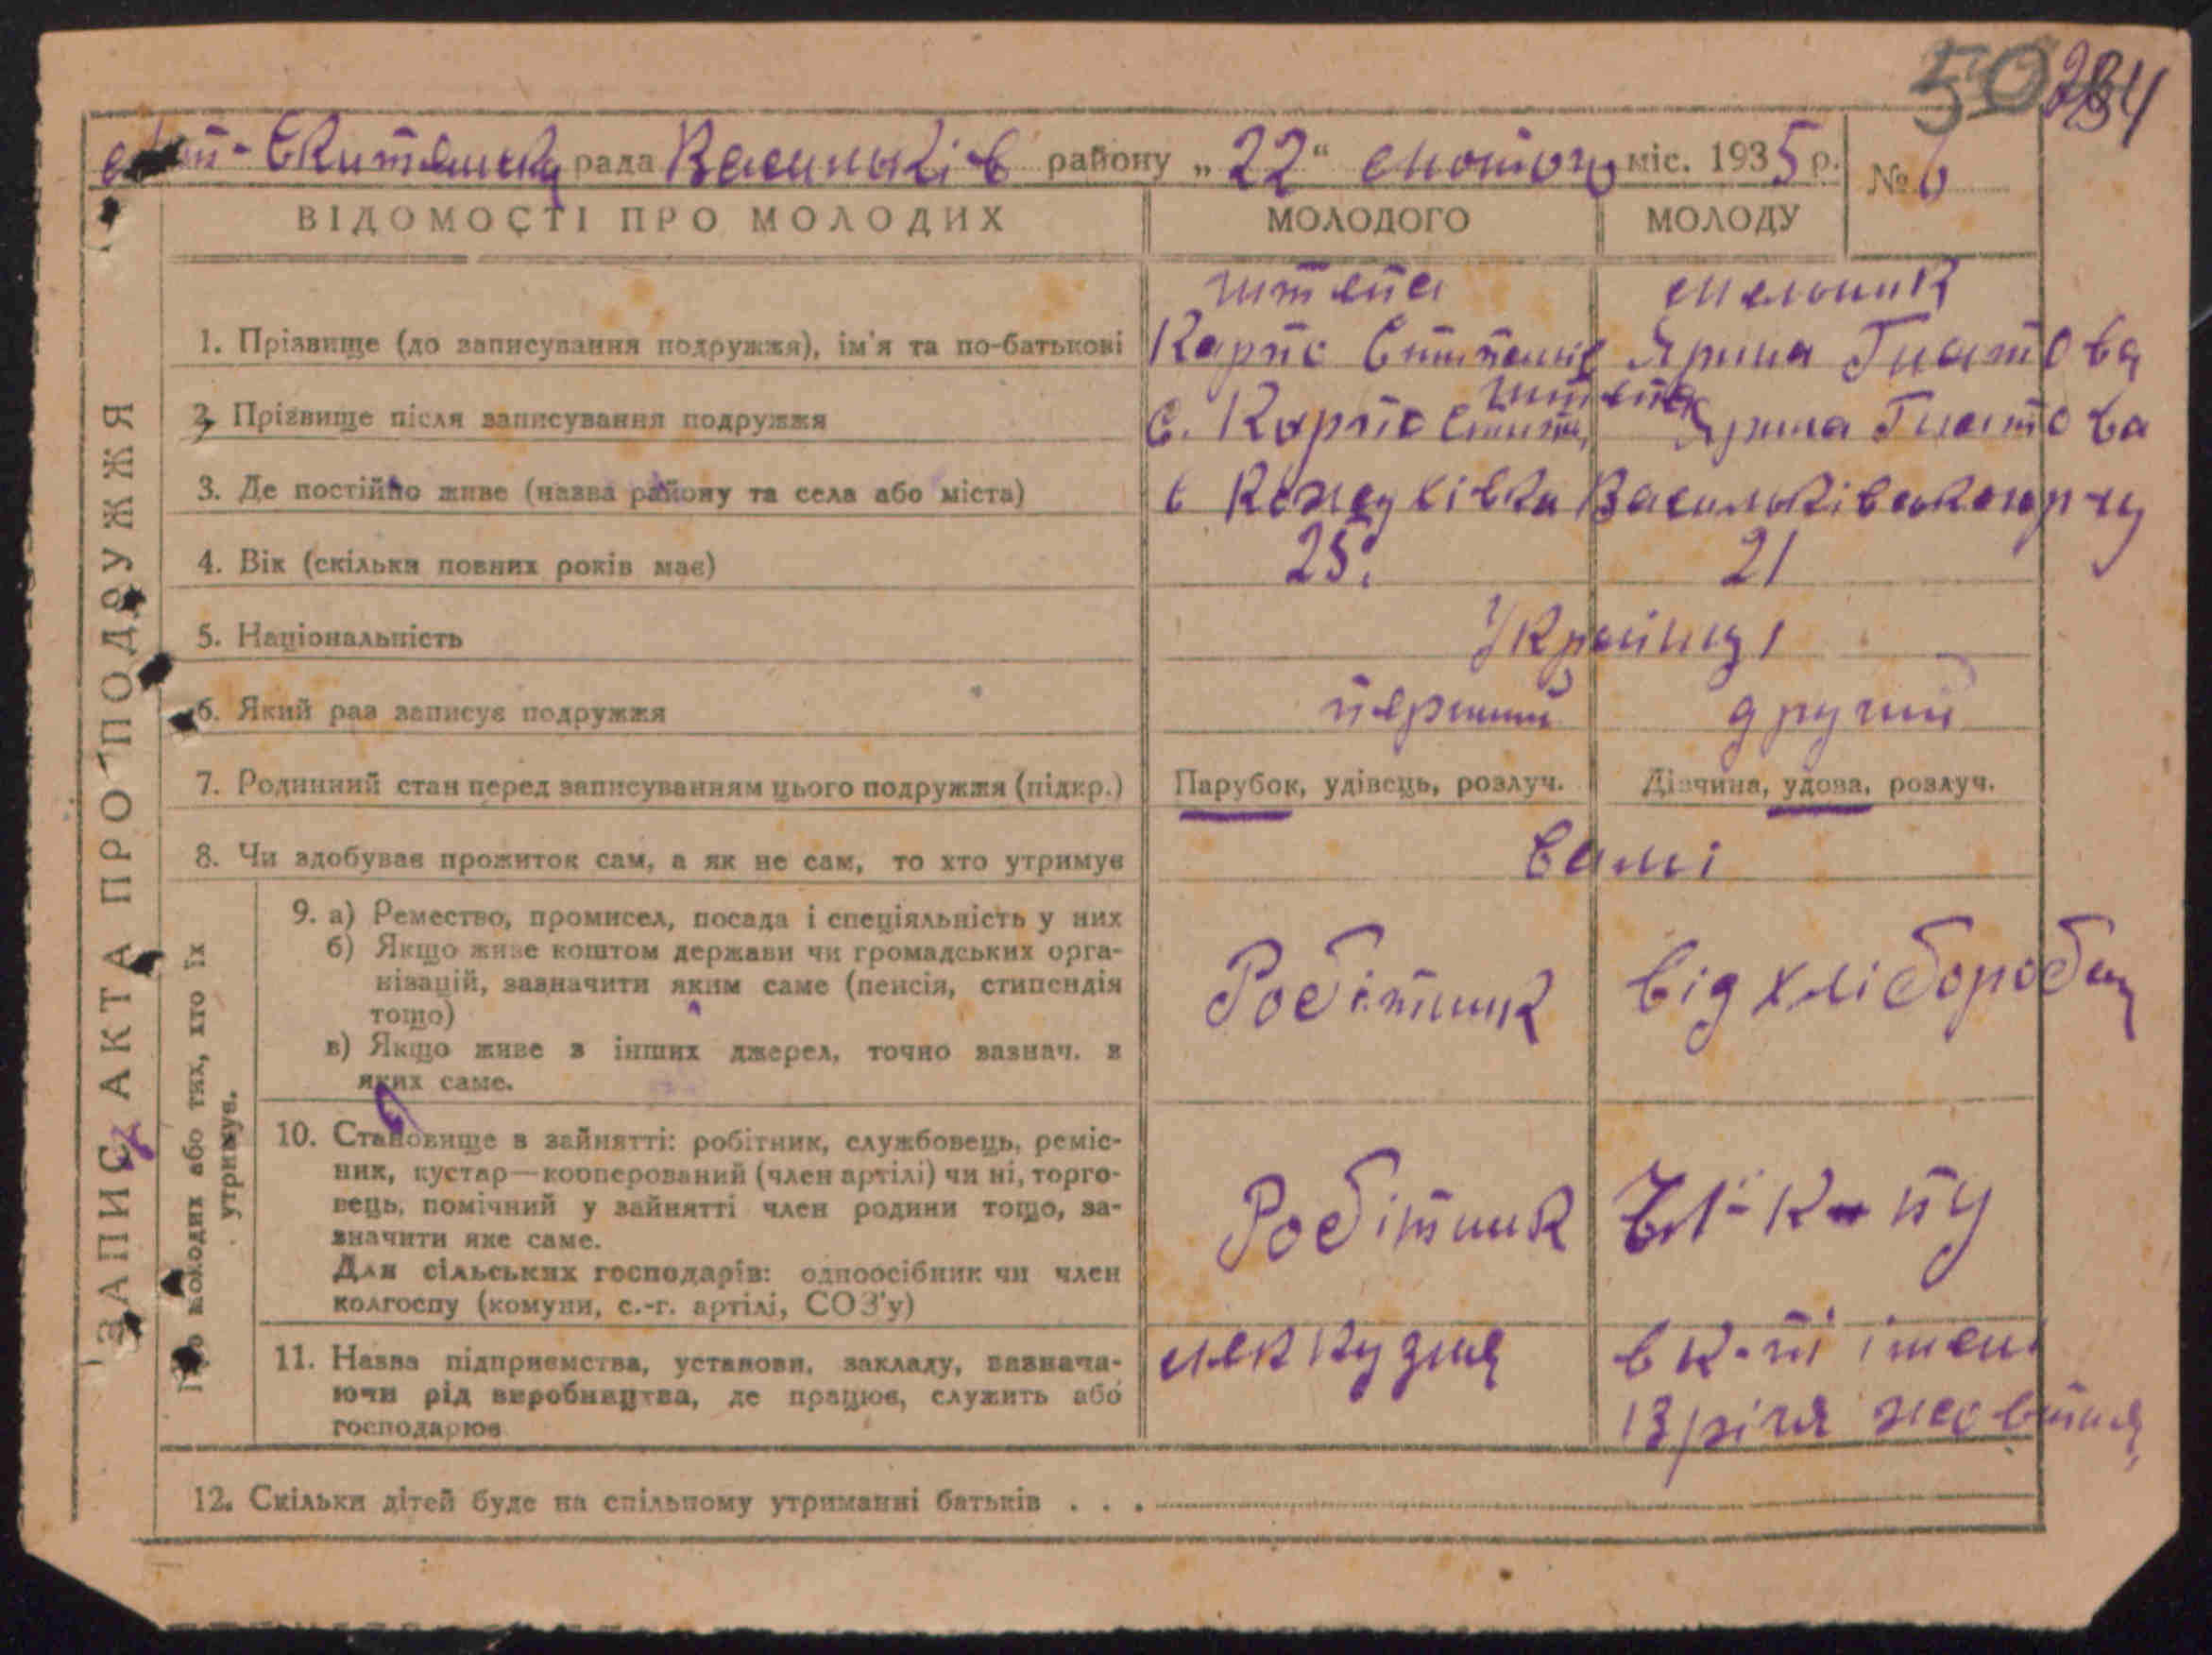 50 284
Скиташська рада Васильків району „22“ лютого міс. 1935 р. № 6
ВІДОМОСТІ ПРО МОЛОДИХ МОЛОДОГО МОЛОДУ
ЗАПИС АКТА ПРО ПОДРУЖЖЯ
Штепа Мельник
1. Прізвище (до записування подружжя), ім'я та по-батькові Карпо Ярина Гнатова
Штепа
2. Прізвище після записування подружжя Карпо Ярина Гнатова
3. Де постійно живе (назва району та села або міста) с Кожухівка Васильківського р-ну
4. Вік (скільки повних років має) 25. 21
5. Національність Українці
6. Який раз записує подружжя перший другий
7. Родинний стан перед записуванням цього подружжя (підкр.) Парубок, удівець, розлуч. Дівчина, удова, розлуч.
8. Чи здобуває прожиток сам, а як не сам, то хто утримує Самі
молодих або тих, хто їх
утримує.
9. а) Ремество, промисел, посада і спеціяльність у них
б) Якщо живе коштом держави чи громадських орга-
нізацій, зазначити яким саме (пенсія, стипендія
тощо)
в) Якщо живе з інших джерел, точно зазнач. з
яких саме.
Робітник від хлібороб
10. Становище в зайнятті: робітник, службовець, реміс-
ник, кустар—кооперований (член артілі) чи ні, торго-
вець, помічний у зайнятті член родини тощо, за-
значити яке саме.
Для сільських господарів: одноосібник чи член
колгоспу (комуни, с.-г. артілі, СОЗ'у)
Робітник чл-к-пу
11. Назва підприємства, установи, закладу, зазнача-
ючи рід виробництва, де працює, служить або
господарює
в к-пі імені
13 річя жовтня
12. Скільки дітей буде на спільному утриманні батьків . . .